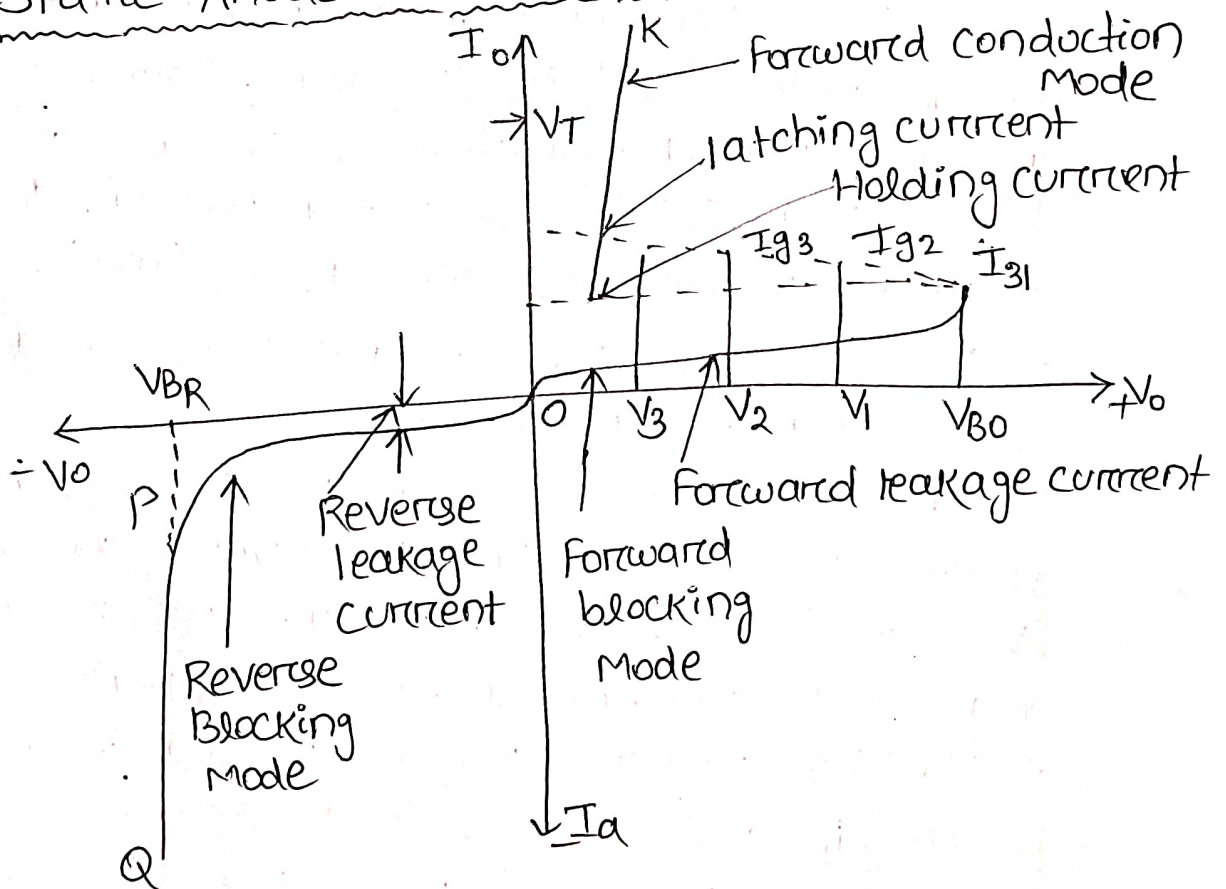 Static
I o
K
Forward conduction
Mode
VT
latching current
Holding current
Ig3
Ig2
Ig1
VBR
-V0
O
V3
V2
V1
VBO
+V0
P
Reverse
leakage
current
Forward leakage current
Forward
blocking
Mode
Reverse
Blocking
Mode
-Ia
Q